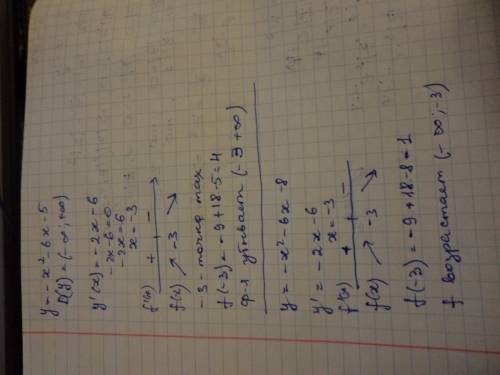 y = -x² - 6x - 5
D(y) = (-∞; +∞)
y'(x) = -2x - 6
-2x - 6 = 0
-2x = 6
x = -3
f'(x) + -
f(x) ↗ -3 ↘
-3 - точка max
f(-3) = -9 + 18 - 5 = 4
ф-я убывает (-3 +∞)
y = -x² - 6x - 8
y' = -2x - 6
x = -3
f'(x) + -
f(x) ↗ -3 ↘
f(-3) = -9 + 18 - 8 = 1
f возрастает (-∞; -3)